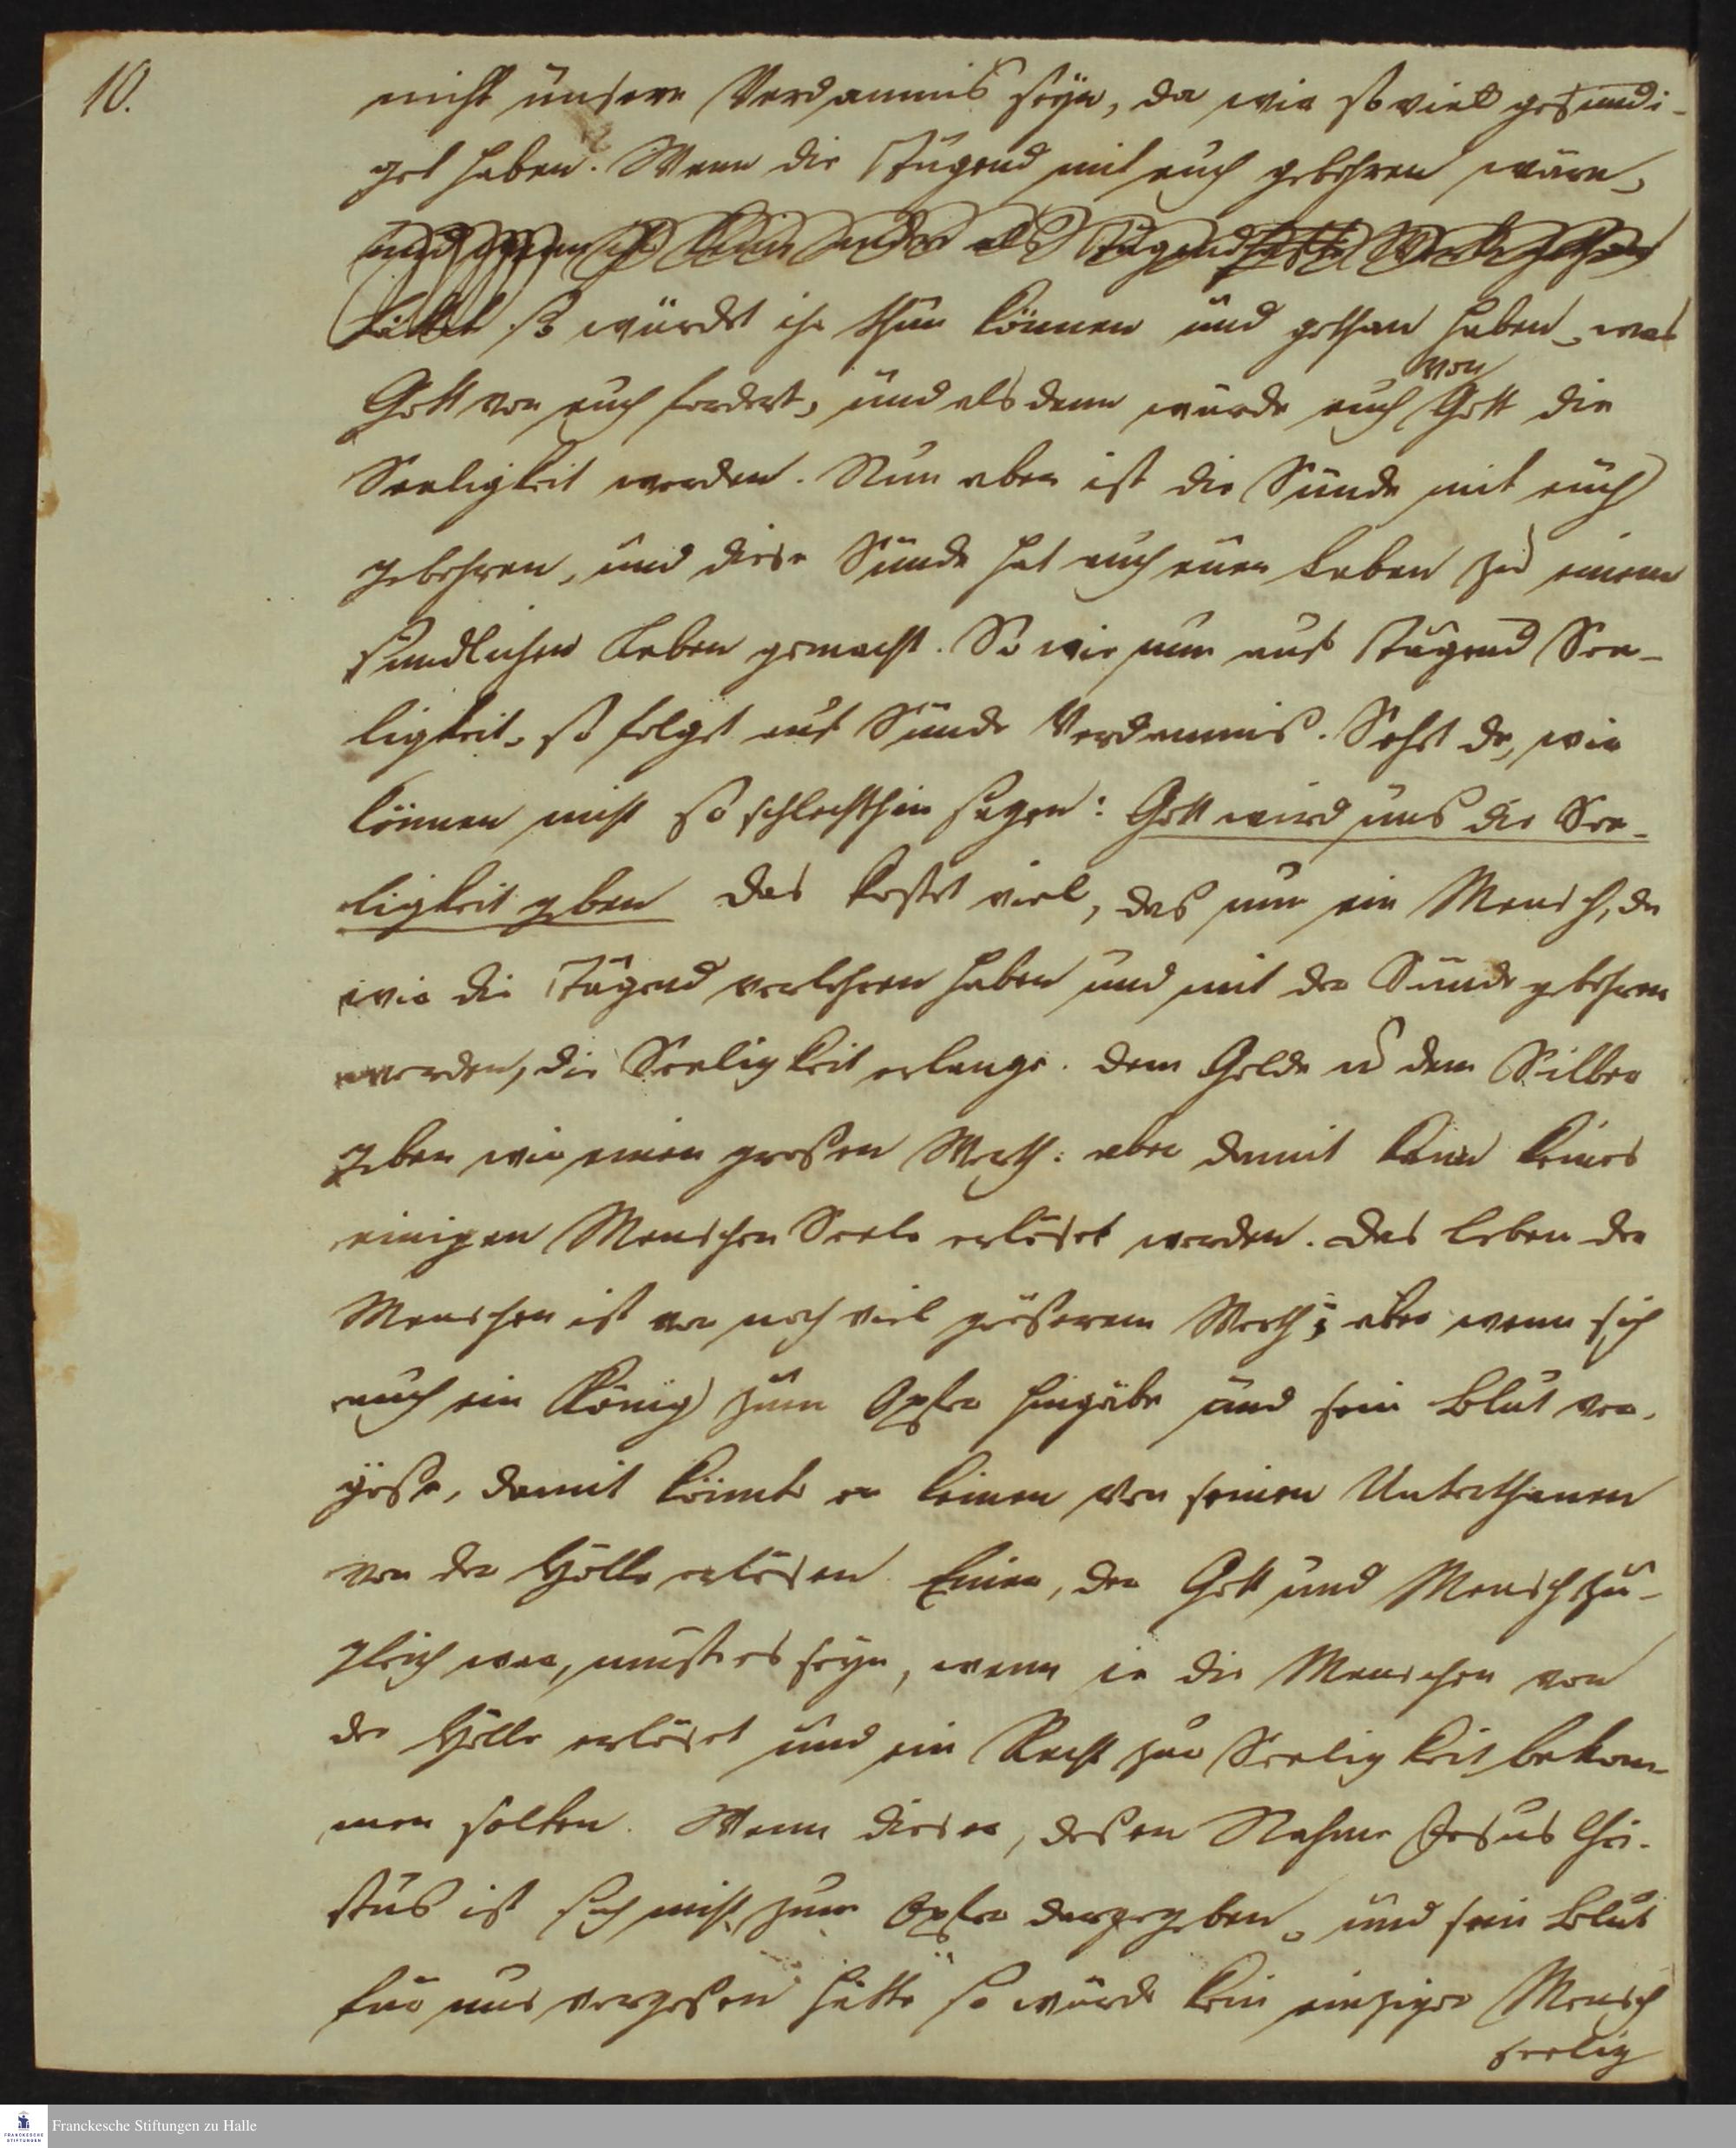 10.
nicht unsere Verdamnis seÿn, da wir so viel gesundi-
get haben. Wenn die Tugend mit euch gebohren wäre,
und wenn ihr keine andre als Tugendhafte Werke gethan
hättet so würdet ihr thun können und gethan haben, was
von
Gott von euch fordert, und alsdann würde euch Gott die
Seeligkeit werden. Nun aber ist die Sünde mit euch
gebohren, und diese Sünde hat auch euer Leben zu einem
sündlichen Leben gemacht. So wie nun auf Tugend See-
ligkeit, so folgt auf Sünde Verdamnis. Seht da, wir
können nicht so schlechthin sagen: Gott wird uns die See-
ligkeit geben das kostet viel, das nun ein Mensch, da
wir die Tugend verlohren haben und mit der Sünde gebohren
werden, die Seeligkeit erlange. dem Golde u dem Silber
geben wir einen großen Werth: aber damit kann keines
einigen Menschen Seele erlöset werden. das Leben der
Menschen ist von noch viel größerem Werth; aber wenn sich
auch ein König zum Opfer hingäbe und sein Blut ver-
göße, damit könnte er keinen von seinen Unterthanen
von der Hölle erlösen. Einer, der Gott und Mensch zu-
gleich war, muste es seÿn, wenn je die Menschen von
der Hölle erlöset und ein Recht zur Seeligkeit bekom-
men solten. Wenn dieser, deßen Nahme Jesus Chri-
stus ist sich nicht zum Opfer dargegeben, und sein Blut
für uns vergoßen hätte so würde kein einziger Mensch
seelig
Franckesche Stiftungen zu Halle
FRANCKESCHE
STIFTUNGEN